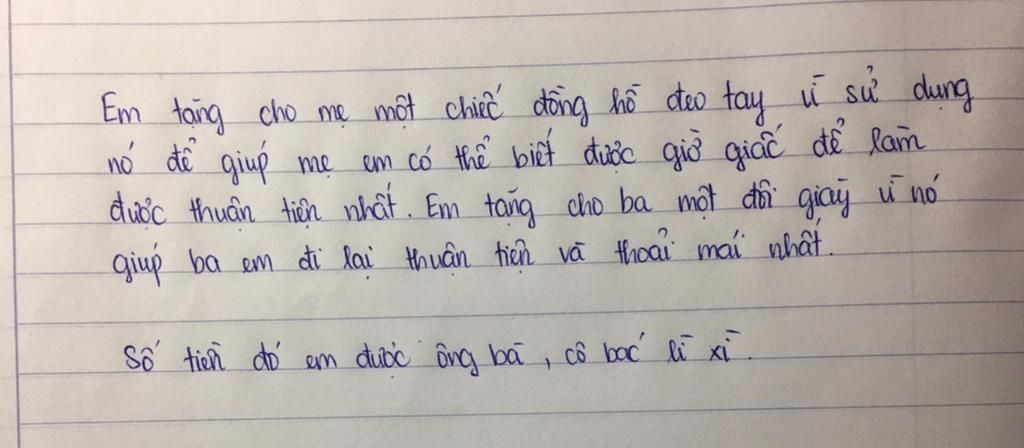 Em tặng cho mẹ một chiếc đồng hồ đeo tay vì sử dụng
nó để giúp mẹ em có thể biết được giờ giấc để làm
được thuận tiện nhất. Em tặng cho ba một đôi giày vì nó
giúp ba em đi lại thuận tiện và thoải mái nhất.
Số tiền đó em được ông bà, cô bác lì xì.